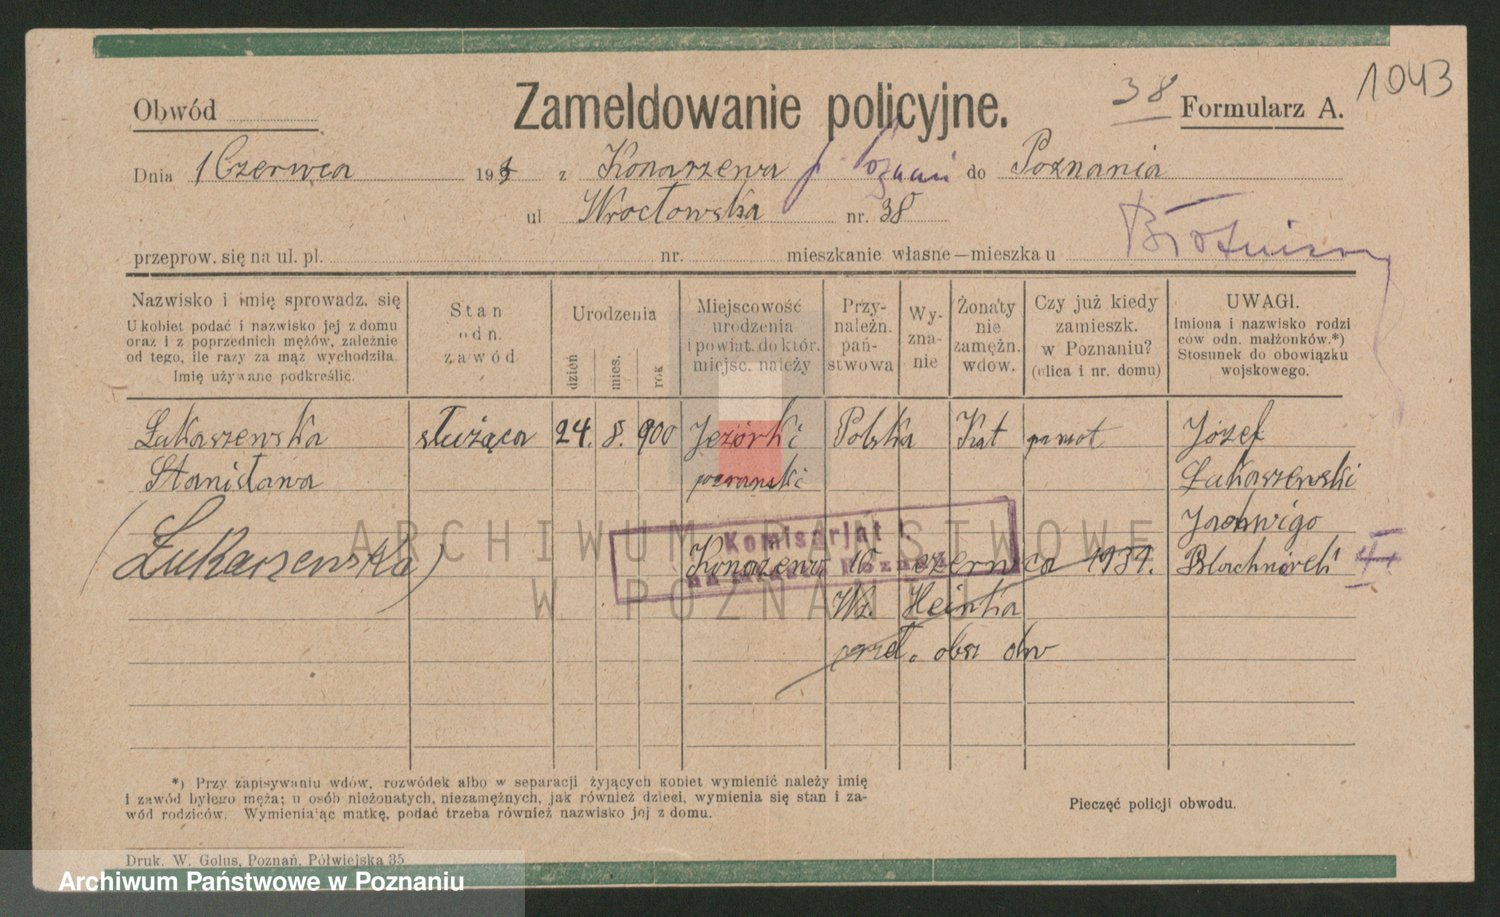 1043
38
Obwód
Zameldowanie policyjne.
Formularz A.
Dnia 1 Czerwca 193 z Konarzewa p. Poznań do Poznania
ul Wrocławska nr. 38
przeprow. się na ul. pl. nr. mieszkanie własne—mieszka u
Nazwisko i imię sprowadz. się
U kobiet podać i nazwisko jej z domu
oraz i z poprzednich mężów, zależnie
od tego, ile razy za mąż wychodziła.
Imię używane podkreślić.
Stan
odn.
zawód
Urodzenia
dzień
mies.
rok
Miejscowość
urodzenia
i powiat. do któr.
miejsc. należy
Przy-
należn.
pań-
stwowa
Wy-
zna-
nie
Żonaty
nie
zamężn.
wdow.
Czy już kiedy
zamieszk.
w Poznaniu?
(ulica i nr. domu)
UWAGI.
Imiona i nazwisko rodzi
ców odn. małżonków.*)
Stosunek do obowiązku
wojskowego.
Łukaszewska służąca 24. 8. 900 Jeziórki Polska Kat Józef
Stanisława poznański Łukaszewski
(Łukaszewska)
Komisarjat I.
Konarzewo 10 czerwca 1931.
Wz. Heinka
przeł. obsz dw
ARCHIWUM PAŃSTWOWE
W POZNANIU
*) Przy zapisywaniu wdów, rozwódek albo w separacji żyjących kobiet wymienić należy imię
i zawód byłego męża; u osób nieżonatych, niezamężnych, jak również dzieci, wymienia się stan i za-
wód rodziców. Wymieniając matkę, podać trzeba również nazwisko jej z domu.
Pieczęć policji obwodu.
Druk. W. Golus, Poznań, Półwiejska 35
Archiwum Państwowe w Poznaniu